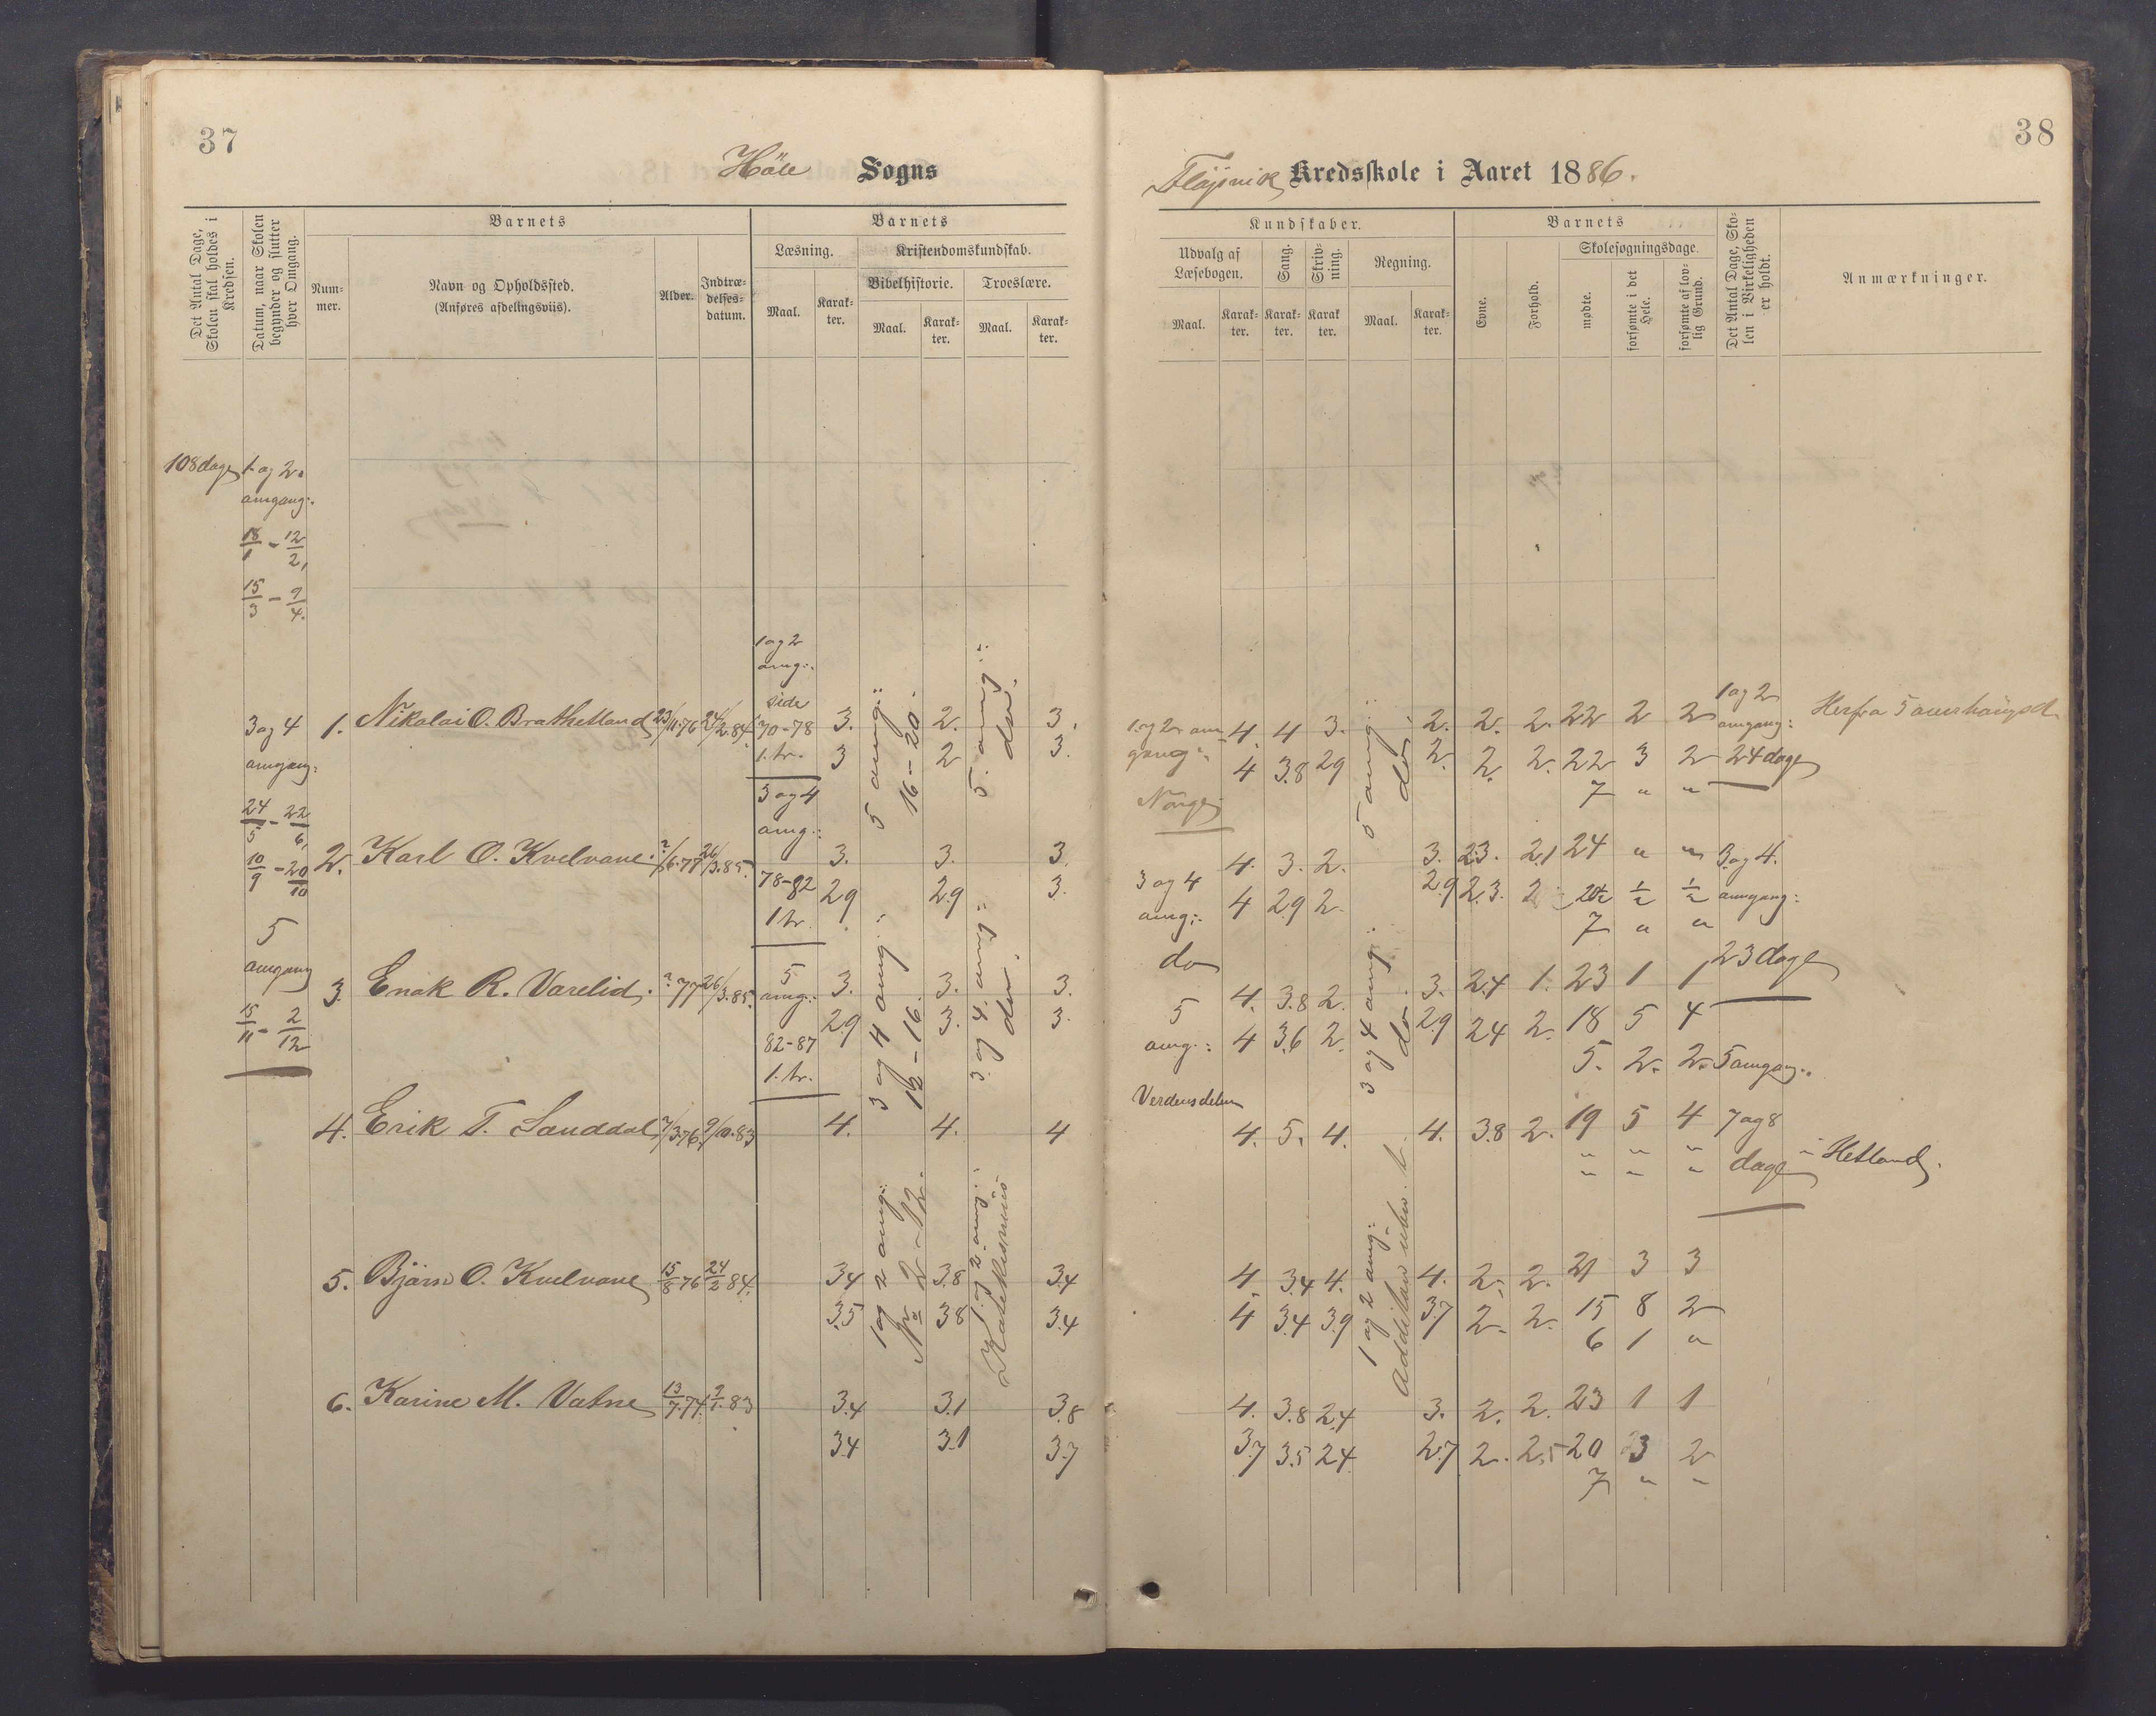 37
Höle Sogns
Det Antal Dage, Skolen skal holdes i Kredsen.
Datum, naar Skolen begynder og slutter hver Omgang.
Barnets
Nummer.
Navn og Opholdssted.
(Anføres afdelingsviis).
Alder.
Indtrædelsesdatum.
Barnets
Læsning.
Maal.
Karakter.
Kristendomskundskab.
Bibelhistorie.
Maal.
Karakter.
Troeslære.
Maal.
Karakter.
108 dage
1 og 2.
omgang:
18/1 - 12/2,
15/3 - 9/4.
3 og 4
omgang:
24/5 - 22/6,
10/9 - 20/10
5
omgang
15/11 - 2/12
1 og 2
omg:
side
70-78
1. tr.
3 og 4
omg:
78-82
1 tr.
5
omg:
82-87
1. tr.
5 omg:
16-20.
3 og 4 omg:
12-16.
1 og 2 omg:
No 2-12.
5. omg:
do.
3. og 4. omg:
do.
1. og 2. omg:
1. Nikolai O. Brathetland 23/11.76 24/2.84. 3. 2. 3.
3 2 3.
2. Karl O. Kvelvane. ?/6.77 26/3.85. 3. 3. 3.
2.9 2.9 3.
3. Enok R. Varelid. ? 77 26/3.85. 3. 3. 3.
2.9 3. 3.
4. Erik T. Sanddal ?/3.76. 9/10.83 4. 4. 4
5. Bjørn O. Kvelvane 15/8 76 24/2 84. 3.4 3.8 3.4
3.5 3.8 3.4
6. Karine M. Vatne 13/7.74. 83 3.4 3.1 3.8
3.4 3.1 3.7
38
Fløjsvik Kredsskole i Aaret 1886.
Kundskaber.
Udvalg af Læsebogen.
Maal.
Karakter.
Sang.
Karakter.
Skrivning.
Karakter.
Regning.
Maal.
Karakter.
Barnets
Evne.
Forhold.
Skolesøgningsdage.
mødte.
forsømte i det Hele.
forsømte af lovlig Grund.
Det Antal Dage, Skolen i Virkeligheden er holdt.
Anmærkninger.
1. og 2. omgang:
Norge
3 og 4
omg:
do
5
omg:
Verdensdelene
5 omg:
do.
3 og 4 omg:
do.
1 og 2 omg:
4. 4 3. 2. 2. 2. 22 2 2
4 3.8 2.9 2. 2. 2. 22 3 2
7 " "
4. 3. 2. 3. 2.3. 2.1 24 " "
4 2.9 2. 2.9 2.3. 2 ½ ½
7 " "
4. 3.8 2. 3. 2.4 1. 23 1 1
4 3.6 2. 2.9 2.4 2. 18 5 4
5. 2. 2.
4. 5. 4. 4. 3.8 2. 19 5 4
" " "
" " "
4. 3.4 4. 4. 2. 2. 21 3 3
4 3.4 3.9 3.7 2. 2. 15 8 2
6 1 "
4. 3.8 2.4 3. 2. 2. 23 1 1
3.7 3.5 2.4 2.7 2. 2.5 20 3 2
7 " "
1 og 2
omgang:
24 dage
3. og 4.
omgang:
23 dage
5 omgang:
7 og 8
dage
Herfra
i Hetland.